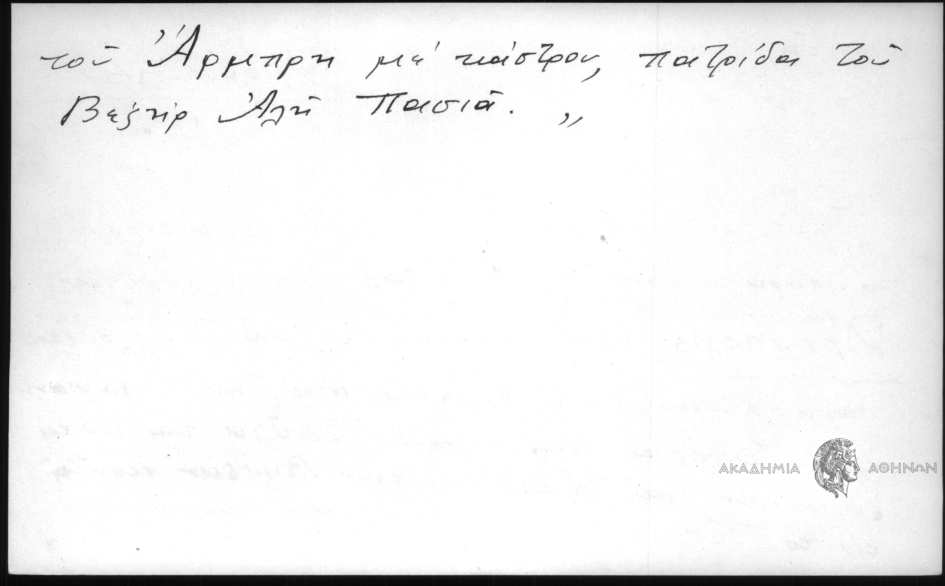 τοῦ Ἄρμπρη μέ κάστρου, πατρίδα τοῦ
Βεζήρ Ἀλῆ Πασιᾶ. „
ΑΚΑΔΗΜΙΑ ΑΘΗΝΩΝ